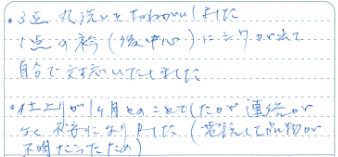 ・3点 丸洗いをおねがいしました
1点の衿(後中心)にシワが出て
自分で対応いたしました
・仕上りが1ヶ月とのことでしたが連絡が
なく不安になりました(電話して品物が
不明だったため)